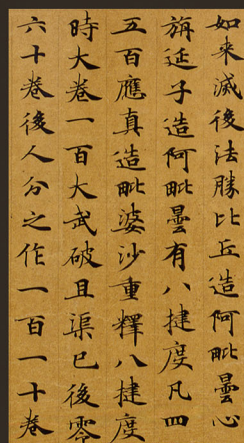 如來滅後法勝比丘造阿毗曇心
旃延子造阿毗曇有八揵度凡四
五百應真造毗婆沙重釋八揵度
時大卷一百大武破且渠已後零
六十卷後人分之作一百一十卷